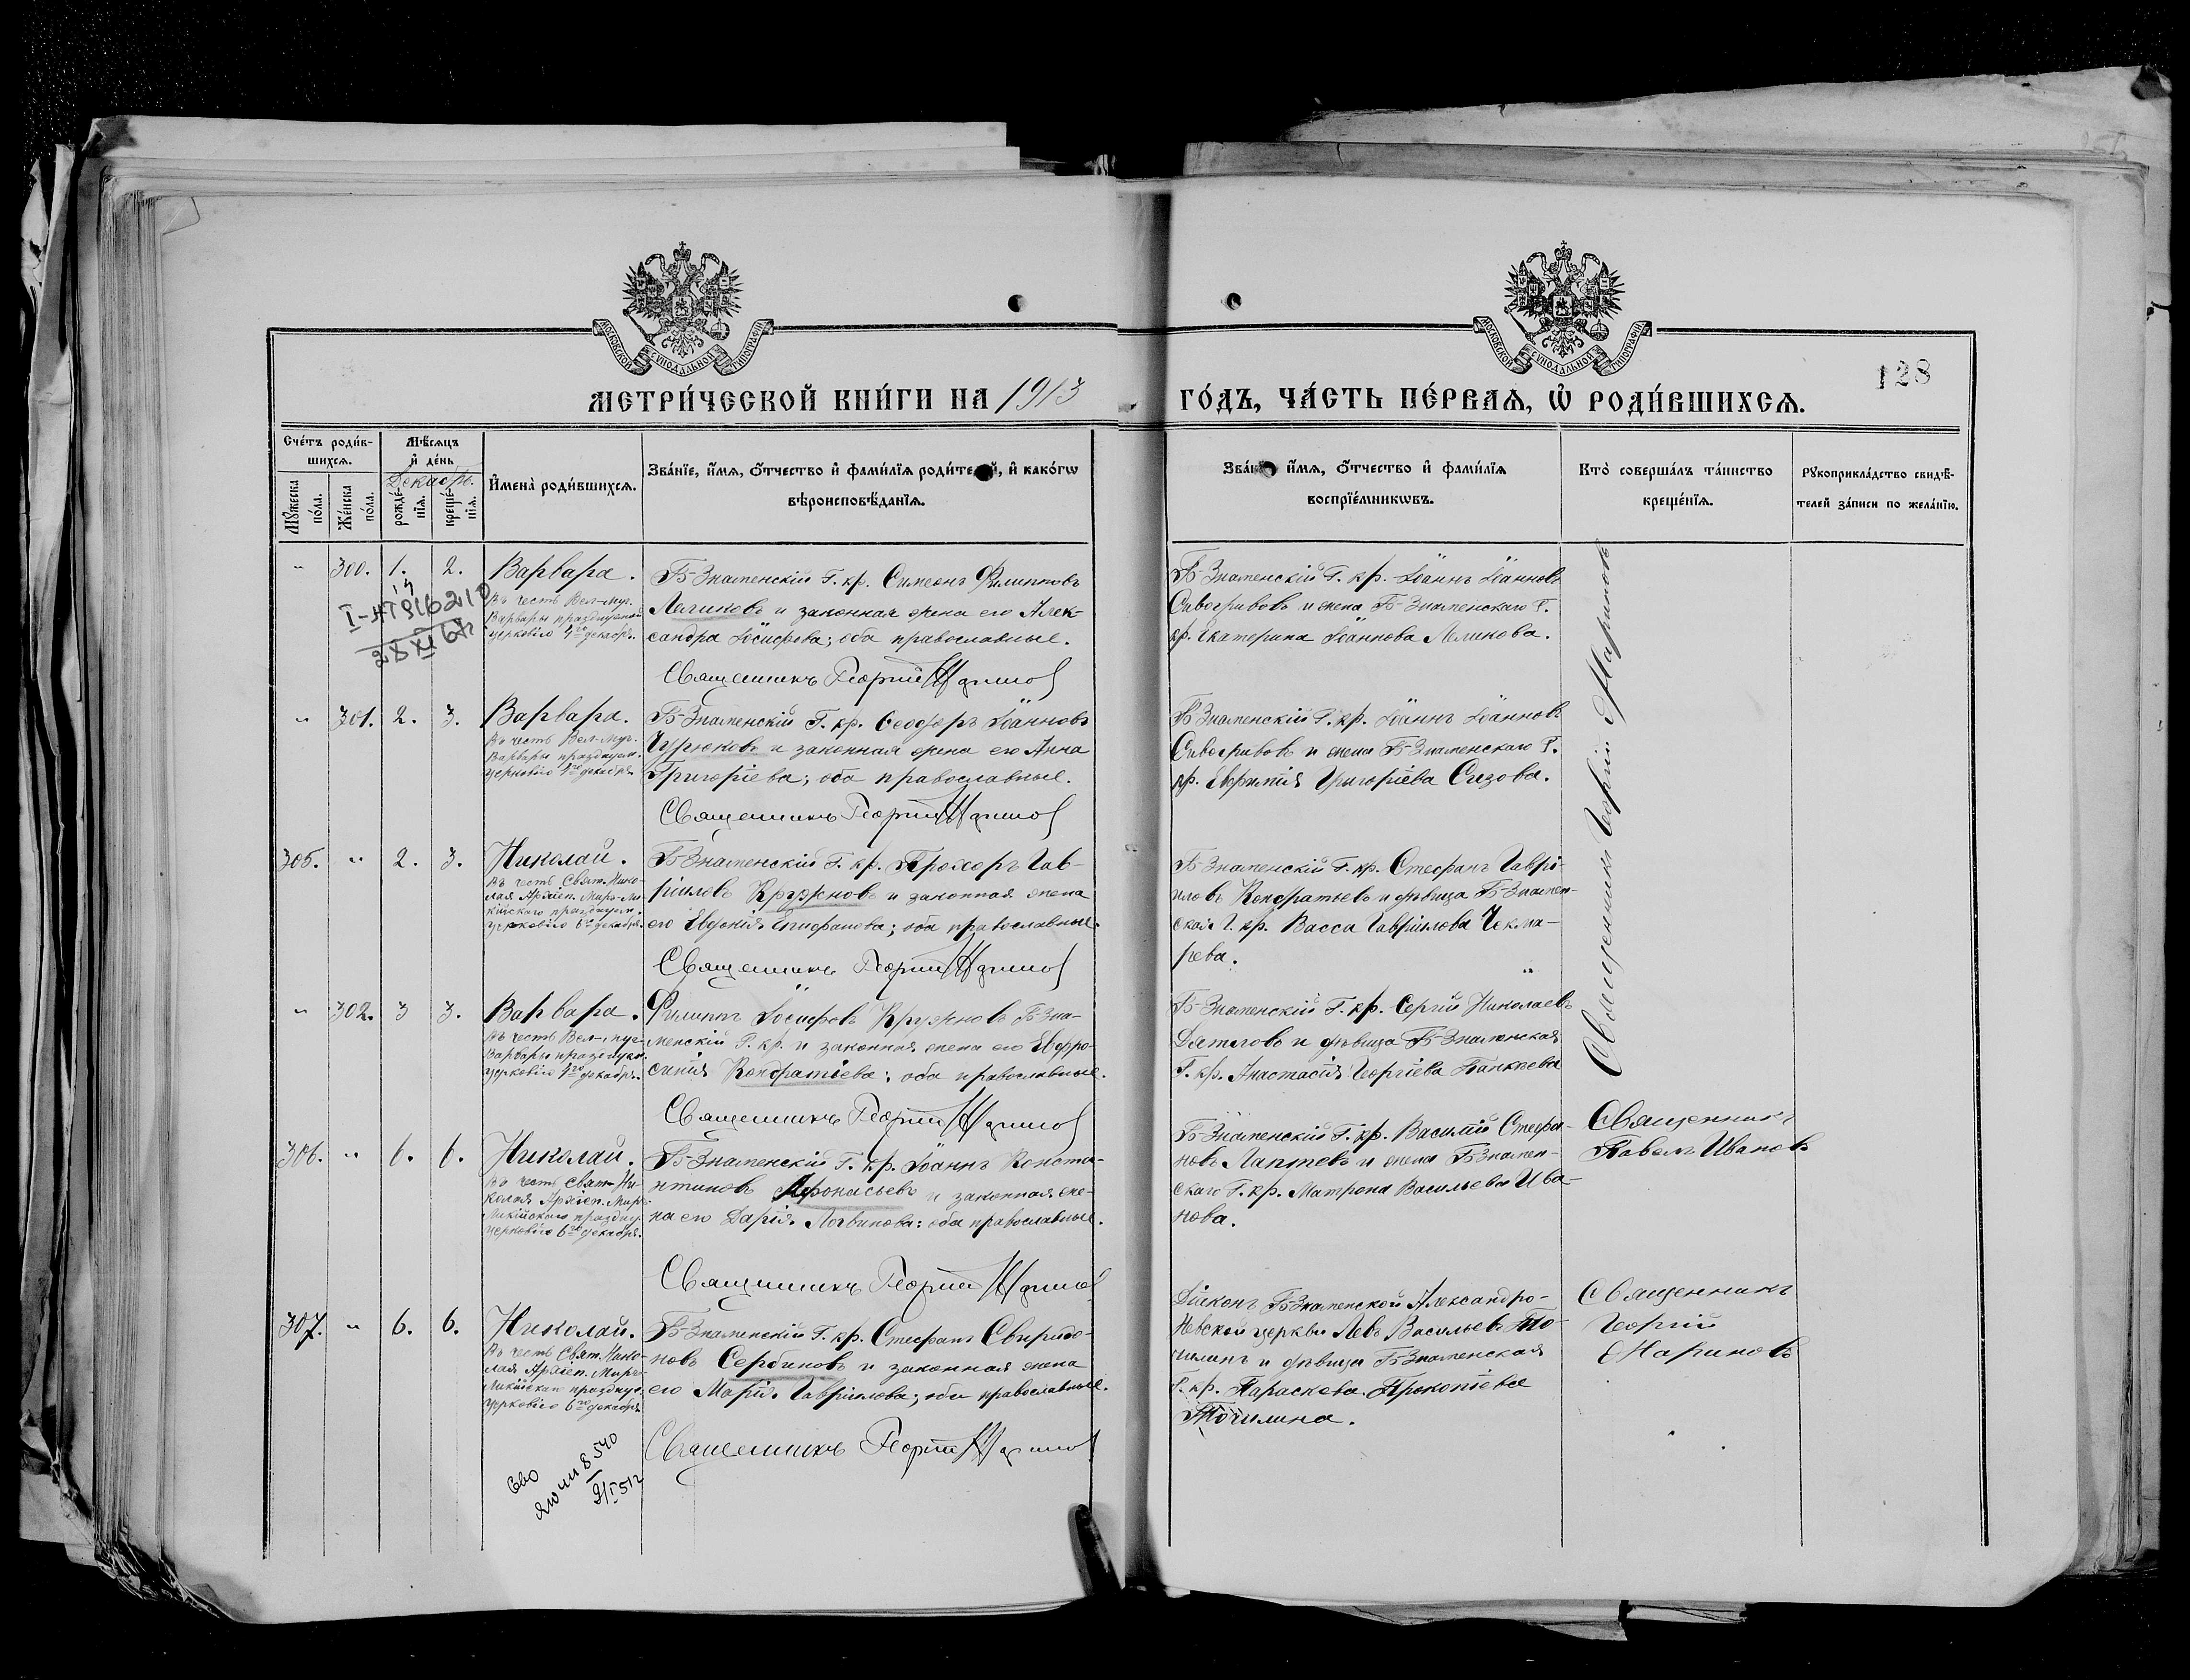 МОСКОВСКОЙ СѴНОДАЛЬНОЙ ТИПОГРАФІИ
МОСКОВСКОЙ СѴНОДАЛЬНОЙ ТИПОГРАФІИ
128
МЕТРИ́ЧЕСКОЙ КНИ́ГИ НА 1913
ГО́ДЪ, ЧА́СТЬ ПЕ́РВАЯ, Ѡ҆ РОДИ́ВШИХСѦ.
Сче́тъ роди́в-
шихсѧ.
Мѣ́сѧцъ
и҆ де́нь
Декабрь.
Мꙋ́жеска
по́ла.
Же́нска
по́ла.
рожде́-
нїѧ.
креще́-
нїѧ.
И҆мена̀ роди́вшихсѧ.
Зва́нїе, и҆́мѧ, ѻ҆́тчество и҆ фами́лїѧ роди́телей, и҆ како́гѡ
вѣроисповѣ́данїѧ.
Зва́нїе, и҆́мѧ, ѻ҆́тчество и҆ фами́лїѧ
воспрїе́мникѡвъ.
Кто̀ соверша́лъ та́инство
креще́нїѧ.
Рꙋкоприкла́дство свидѣ́-
телей за́писи по жела́нїю.
" 300. 1. 2. Варвара.
Въ честь Вел-муч.
Варвары празднуемой
церковію 4го декабр.
Б-Знаменскій Г. кр. Симеонъ Филипповъ
и законная жена его Алек-
сандра Іосифова; оба православные.
Священникъ Георгій Мариновъ
Б-Знаменскій Г. кр. Іоаннъ Іоанновъ
Сивогривовъ и жена Б-Знаменскаго Г.
кр. Екатерина Іоаннова
28 XI 67
" 301. 2. 3. Варвара.
Въ честь Вел-муч.
Варвары празднуем.
церковію 4го декабря
Б-Знаменскій Г. кр. Ѳеодоръ Іоанновъ
Чурюковъ и законная жена его Анна
Григоріева; оба православные.
Священникъ Георгій Мариновъ
Б-Знаменскій Г. кр. Іоаннъ Іоанновъ
Сивогривовъ и жена Б-Знаменскаго Г.
кр. Евфимія Григоріева Сизова.
305. " 2. 3. Николай.
Въ честь Свят. Нико-
лая Архіеп. Миръ-Ли-
кійскаго празднуем.
церковію 6го декабря.
Б-Знаменскій Г. кр. Прохоръ Гав-
ріиловъ Кружновъ и законная жена
его Евдокія Епифанова; оба православные.
Священникъ Георгій Мариновъ
Б-Знаменскій Г. кр. Стефанъ Гаврі-
иловъ Кондратьевъ и дѣвица Б-Знамен-
ская Г. кр. Васса Гавріилова Чекма-
рева.
" 302. 3 3. Варвара.
Въ честь Вел-муч-
Варвары празднуем.
церковію 4го декабр.
Филиппъ Іосифовъ Кружновъ Б-Зна-
менскій Г. кр. и законная жена его Евфро-
синія Кондратіева; оба православные.
Священникъ Георгій Мариновъ
Б-Знаменскій Г. кр. Сергій Николаевъ
и дѣвица Б-Знаменская
Г. кр. Анастасія Георгіева
Священникъ Георгій Мариновъ
306. " 6. 6. Николай.
Въ честь Свят. Ни-
колая Архіеп. Миръ-
Ликійскаго праздну.
церковію 6го декабря.
Б-Знаменскій Г. кр. Іоаннъ Конста-
нтиновъ Афонасьевъ и законная же-
на его Дарія Логвинова: оба православные.
Священникъ Георгій Мариновъ
Б-Знаменскій Г. кр. Василій Стефа-
новъ Лаптевъ и жена Б-Знамен-
скаго Г. кр. Матрона Васильева Ива-
нова.
Священникъ
Павелъ Ивановъ
307. " 6. 6. Николай.
Въ честь Свят. Нико-
лая Архіеп. Миръ-
Ликійскаго праздну.
церковію 6го декабря
Б-Знаменскій Г. кр. Стефанъ Свиридо-
новъ Сербиновъ и законная жена
его Марія Гавріилова; оба православные.
Священникъ Георгій Мариновъ
Діаконъ Б-Знаменской Александро-
Невской церкви Левъ Васильевъ То-
чилинъ и дѣвица Б-Знаменская
Г. кр. Параскева Прокопіева
Точилина.
Священникъ
Георгій
Мариновъ